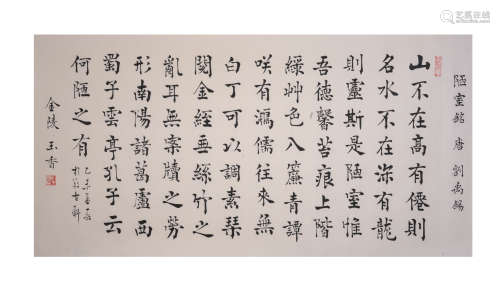 陋室銘 唐 劉禹錫
山不在高有僊則
名水不在深有龍
則靈斯是陋室惟
吾德馨苔痕上階
綠草色入簾青譚
咲有鴻儒往來無
白丁可以調素琴
閱金經無絲竹之
亂耳無案牘之勞
形南陽諸葛廬西
蜀子雲亭孔子云
何陋之有
乙未
金陵 玉香